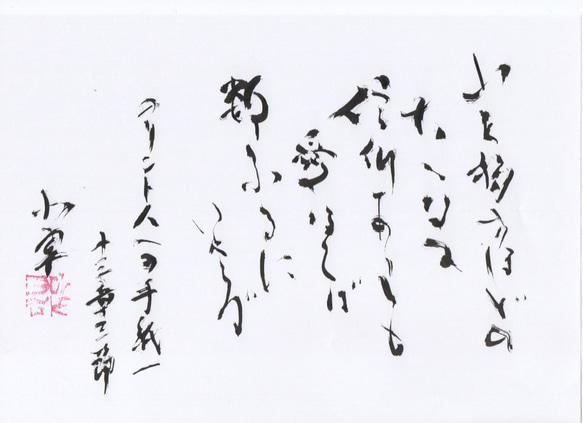 山を移すほどの
大いなる
信仰ありとも
愛なくば
数ふるに
足らず
コリント人への手紙一
十三章二節